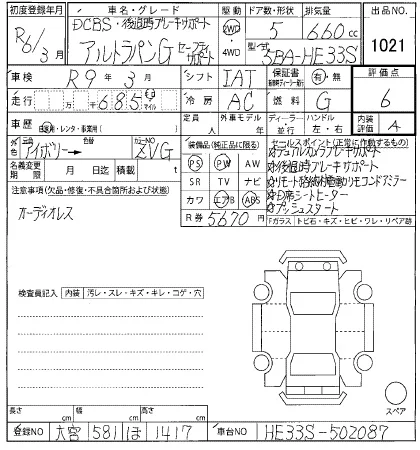 初度登録年月 車名・グレード 駆動 ドア数・形状 排気量 出品NO.
R6/3月 DCBS・後退時ブレーキサポート 2WD 5 660cc 1021
アルトラパンG セーフティサポート 4WD 型式 5BA-HE33S
車検 R9年3月 シフト IAT 保証書 有・無 評価点
走行 万 千 685 km マイル 冷房 AC 燃料 G 6
車歴 自家用・レンタ・事業用( ) 定員 人 外車モデル 年 ディーラー 並行 ハンドル 左・右 内装評価 A
色 元色 アイボリー 色替 カラーNO ZVG 装備品(純正品に限る) セールスポイント(正常に作動するもの)
PS PW AW ☆デュアルカメラブレーキサポート
名義変更期限 月 日迄 積載 t ☆後退時ブレーキサポート
SR TV ナビ
注意事項(欠品・修復・不具合箇所および状態) ☆D席シートヒーター
カワ エアB ABS ☆プッシュスタート
オーディオレス R券 5670円 Fガラス・トビ石・キズ・ヒビ・ワレ・リペア跡
検査員記入 内装 汚レ・スレ・キズ・キレ・コゲ・穴
スペア
長さ cm 幅 cm 高さ cm
登録NO 大宮 581 ほ 1417 車台NO HE33S-502087